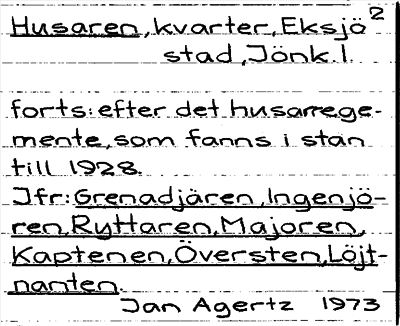 Husaren, kvarter, Eksjö 2
stad, Jönk. l.
forts: efter det husarrege-
mente, som fanns i stan
till 1928.
Jfr: Grenadjären, Ingenjö-
ren, Ryttaren, Majoren,
Kaptenen, Översten, Löjt-
nanten.
Jan Agertz 1973